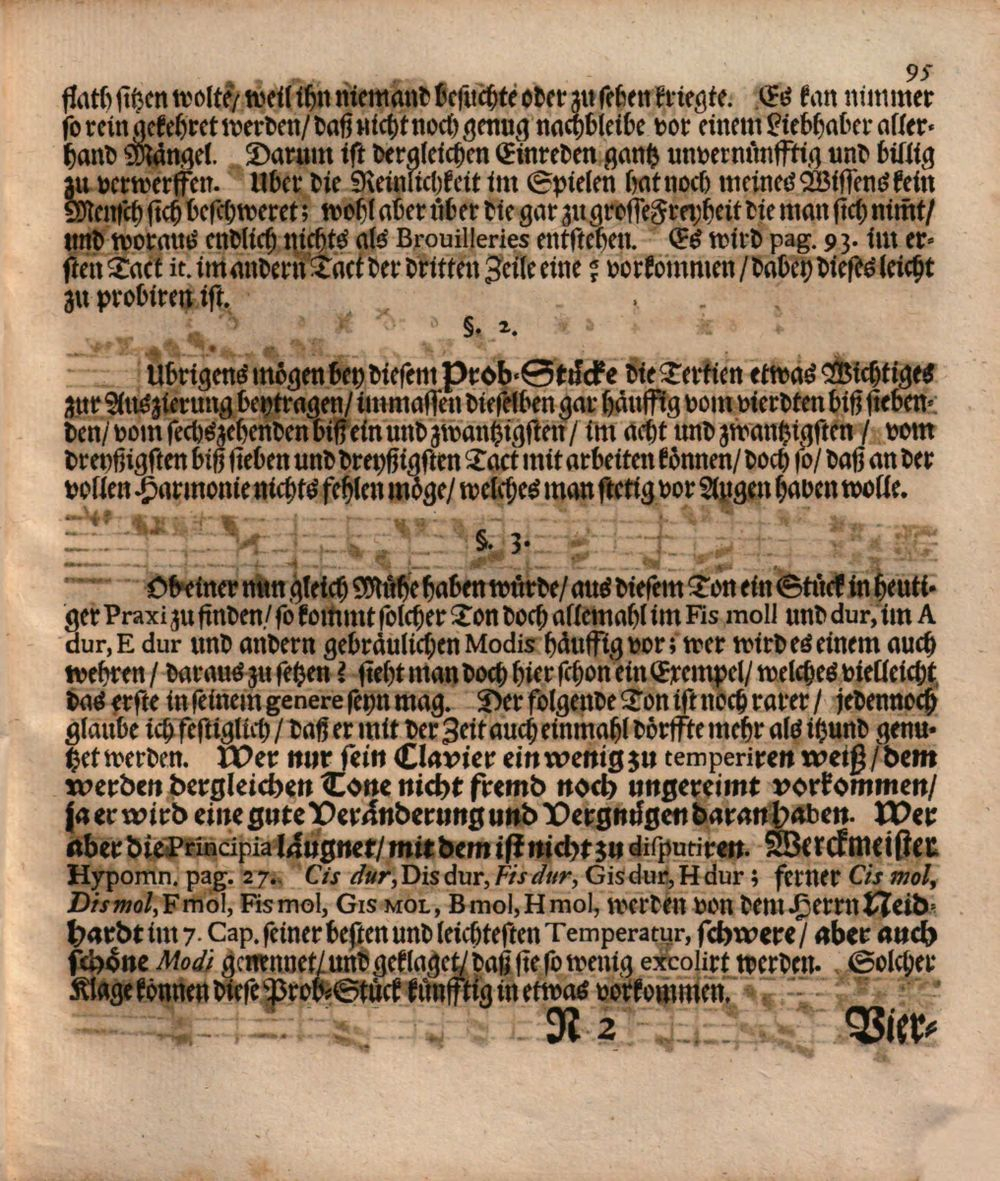 95
flath sitzen wolte/ weil ihn niemand besuchte oder zu sehen kriegte. Es kan nimmer
so rein gekehret werden/ daß nicht noch genug nachbleibe vor einem Liebhaber aller-
hand Mängel. Darum ist dergleichen Einreden gantz unvernünfftig und billig
zu verwerffen. Uber die Reinlichkeit im Spielen hat noch meines Wissens kein
Mensch sich beschweret; wohl aber über die gar zu grosse Freyheit die man sich nim̃t/
und woraus endlich nichts als Brouilleries entstehen. Es wird pag. 93. im er-
sten Tact it. im andern Tact der dritten Zeile eine vorkommen/ dabey dieses leicht
zu probiren ist.
§. 2.
Ubrigens mögen bey diesem Prob-Stücke die Tertien etwas Wichtiges
zur Auszierung beytragen/ immassen dieselben gar häuffig vom vierdten biß sieben-
den/ vom sechszehenden biß ein und zwantzigsten/ im acht und zwantzigsten/ vom
dreyßigsten biß sieben und dreyßigsten Tact mit arbeiten können/ doch so/ daß an der
vollen Harmonie nichts fehlen möge/ welches man stetig vor Augen haben wolle.
§. 3.
Ob einer nun gleich Mühe haben würde/ aus diesem Ton ein Stück in heuti-
ger Praxi zu finden/ so kommt solcher Ton doch allemahl im Fis moll und dur, im A
dur, E dur und andern gebräulichen Modis häuffig vor; wer wird es einem auch
wehren/ daraus zu setzen? sieht man doch hier schon ein Exempel/ welches vielleicht
das erste in seinem genere seyn mag. Der folgende Ton ist noch rarer/ jedennoch
glaube ich festiglich/ daß er mit der Zeit auch einmahl dörffte mehr als itzund genu-
tzet werden. Wer nur sein Clavier ein wenig zu temperiren weiß/ dem
werden dergleichen Tone nicht fremd noch ungereimt vorkommen/
ja er wird eine gute Veränderung und Vergnügen daran haben. Wer
aber die Principia läugnet/ mit dem ist nicht zu disputiren. Werckmeister
Hypomn. pag. 27. Cis dur, Dis dur, Fis dur, Gis dur, H dur; ferner Cis mol,
Dis mol, F mol, Fis mol, GIS MOL, B mol, H mol, werden von dem Herrn Neid-
hardt im 7. Cap. seiner besten und leichtesten Temperatur, schwere/ aber auch
schöne Modi genennet/ und geklaget/ daß sie so wenig excolirt werden. Solcher
Klage können diese Prob-Stück künfftig in etwas vorkommen.
N 2 Vier-